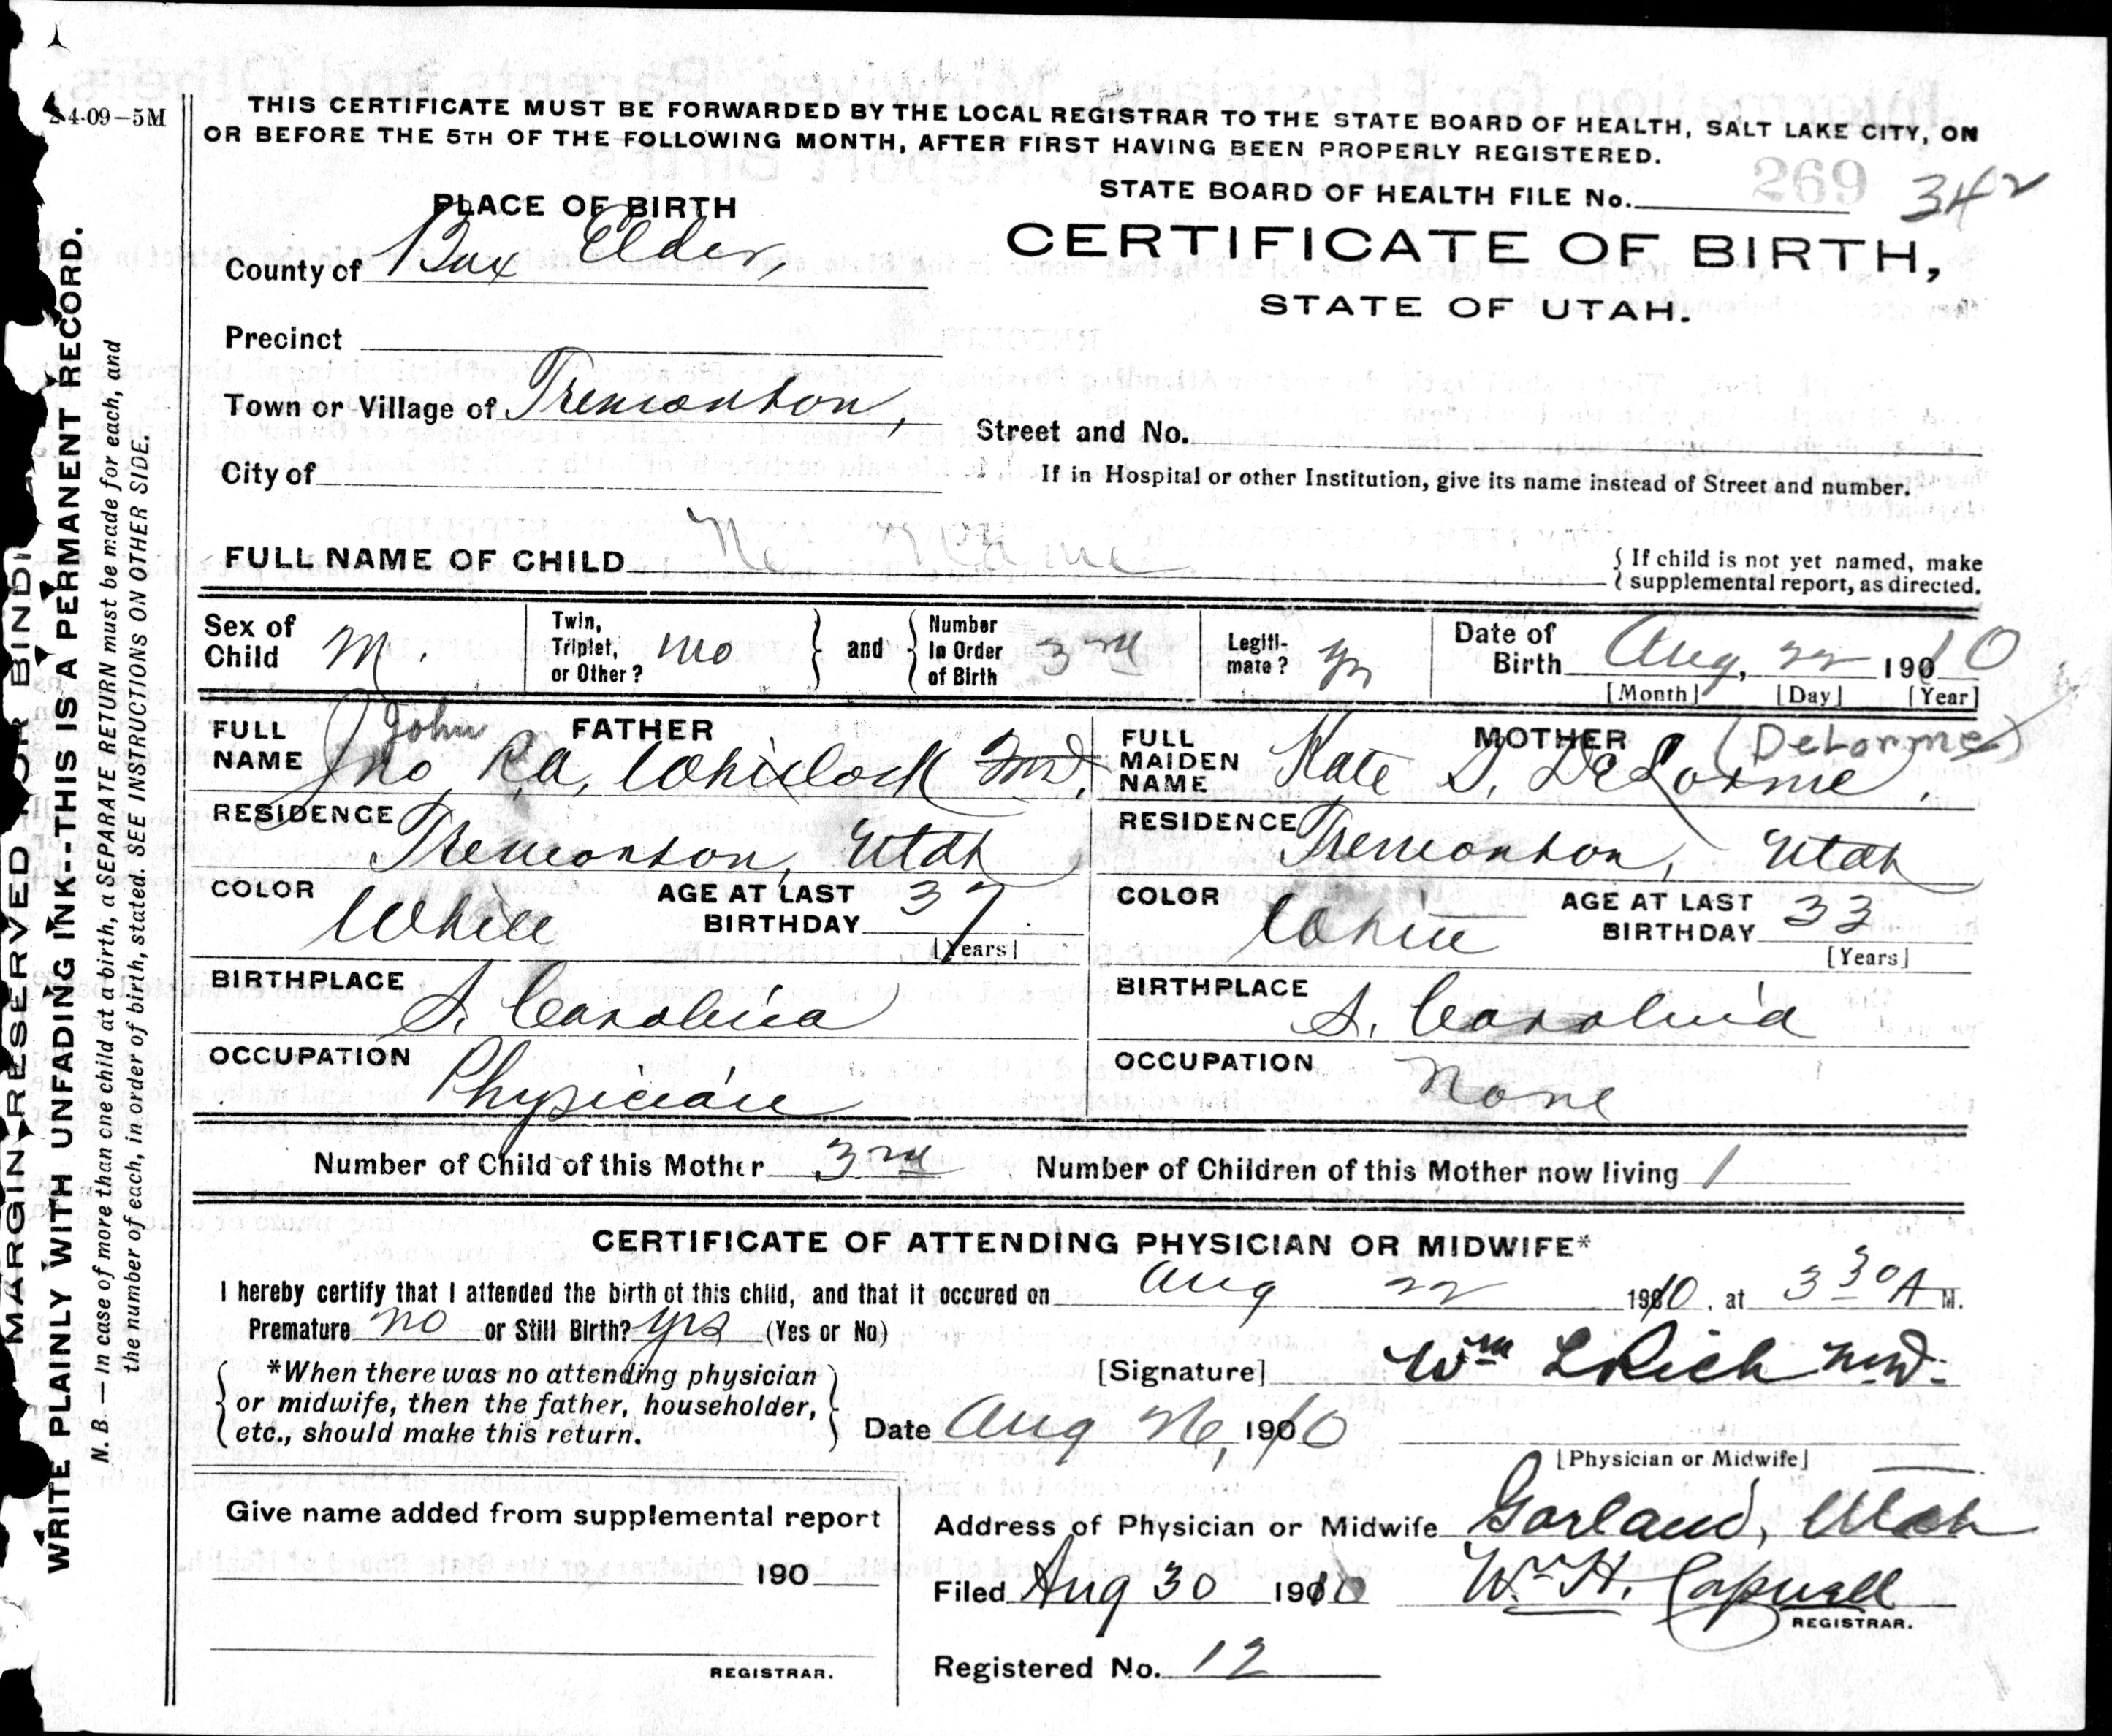 24-09-5M
THIS CERTIFICATE MUST BE FORWARDED BY THE LOCAL REGISTRAR TO THE STATE BOARD OF HEALTH, SALT LAKE CITY, ON
OR BEFORE THE 5TH OF THE FOLLOWING MONTH, AFTER FIRST HAVING BEEN PROPERLY REGISTERED.
STATE BOARD OF HEALTH FILE No. 269 342
PLACE OF BIRTH
CERTIFICATE OF BIRTH,
STATE OF UTAH.
County of Box Elder
Precinct
Town or Village of Tremonton,
Street and No.
City of
If in Hospital or other Institution, give its name instead of Street and number.
FULL NAME OF CHILD No Name
{ If child is not yet named, make
supplemental report, as directed.
Sex of Child M.
Twin, Triplet, or Other? No } and { Number In Order of Birth 3rd
Legiti-mate? Yes
Date of Birth Aug, 22 1910
[Month] [Day] [Year]
FATHER
FULL NAME John
Jno. R.A. Whitlock M.D.
RESIDENCE Tremonton, Utah
COLOR White
AGE AT LAST BIRTHDAY 37
[Years]
BIRTHPLACE S. Carolina
OCCUPATION Physician
MOTHER (DeLorme)
FULL MAIDEN NAME Kate D. DeLorme.
RESIDENCE Tremonton, Utah
COLOR White
AGE AT LAST BIRTHDAY 33
[Years]
BIRTHPLACE S. Carolina
OCCUPATION None
Number of Child of this Mother 3rd Number of Children of this Mother now living 1
CERTIFICATE OF ATTENDING PHYSICIAN OR MIDWIFE*
I hereby certify that I attended the birth of this child, and that it occured on Aug 22 1910, at 3 30 A M.
Premature no or Still Birth? yes (Yes or No)
*When there was no attending physician
or midwife, then the father, householder,
etc., should make this return.
[Signature] Wm L Rich M.D.
Date Aug 26, 1910
[Physician or Midwife]
Give name added from supplemental report
190
REGISTRAR.
Address of Physician or Midwife Garland, Utah
Filed Aug 30 1910 Wm H. Capwell
REGISTRAR.
Registered No. 12
MARGIN RESERVED FOR BINDI
WRITE PLAINLY WITH UNFADING INK--THIS IS A PERMANENT RECORD.
N. B. — In case of more than one child at a birth, a SEPARATE RETURN must be made for each, and
the number of each, in order of birth, stated. SEE INSTRUCTIONS ON OTHER SIDE.